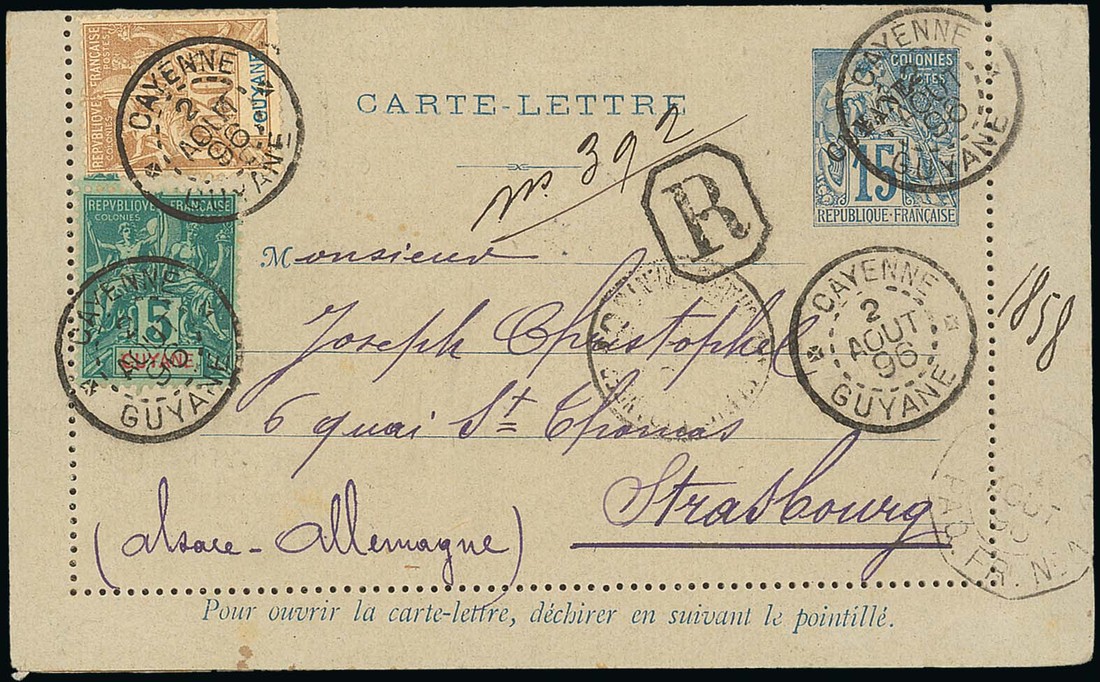 REPVBLIQUE FRANÇAISE
COLONIES POSTES
GUYANE
CAYENNE
2
AOUT
96
GUYANE
CARTE-LETTRE
COLONIES
POSTES
GUYANE
15
REPUBLIQUE-FRANÇAISE
CAYENNE
2
AOUT
96
GUYANE
no 392
R
REPVBLIQUE FRANÇAISE
COLONIES POSTES
5
GUYANE
CAYENNE
2
AOUT
GUYANE
Monsieur
Joseph Christophel
6 quai St Thomas
Strasbourg
(Alsace-Allemagne)
CAYENNE
2
AOUT
96
GUYANE
1858
AOUT
PAQ. FR. No 1
Pour ouvrir la carte-lettre, déchirer en suivant le pointillé.